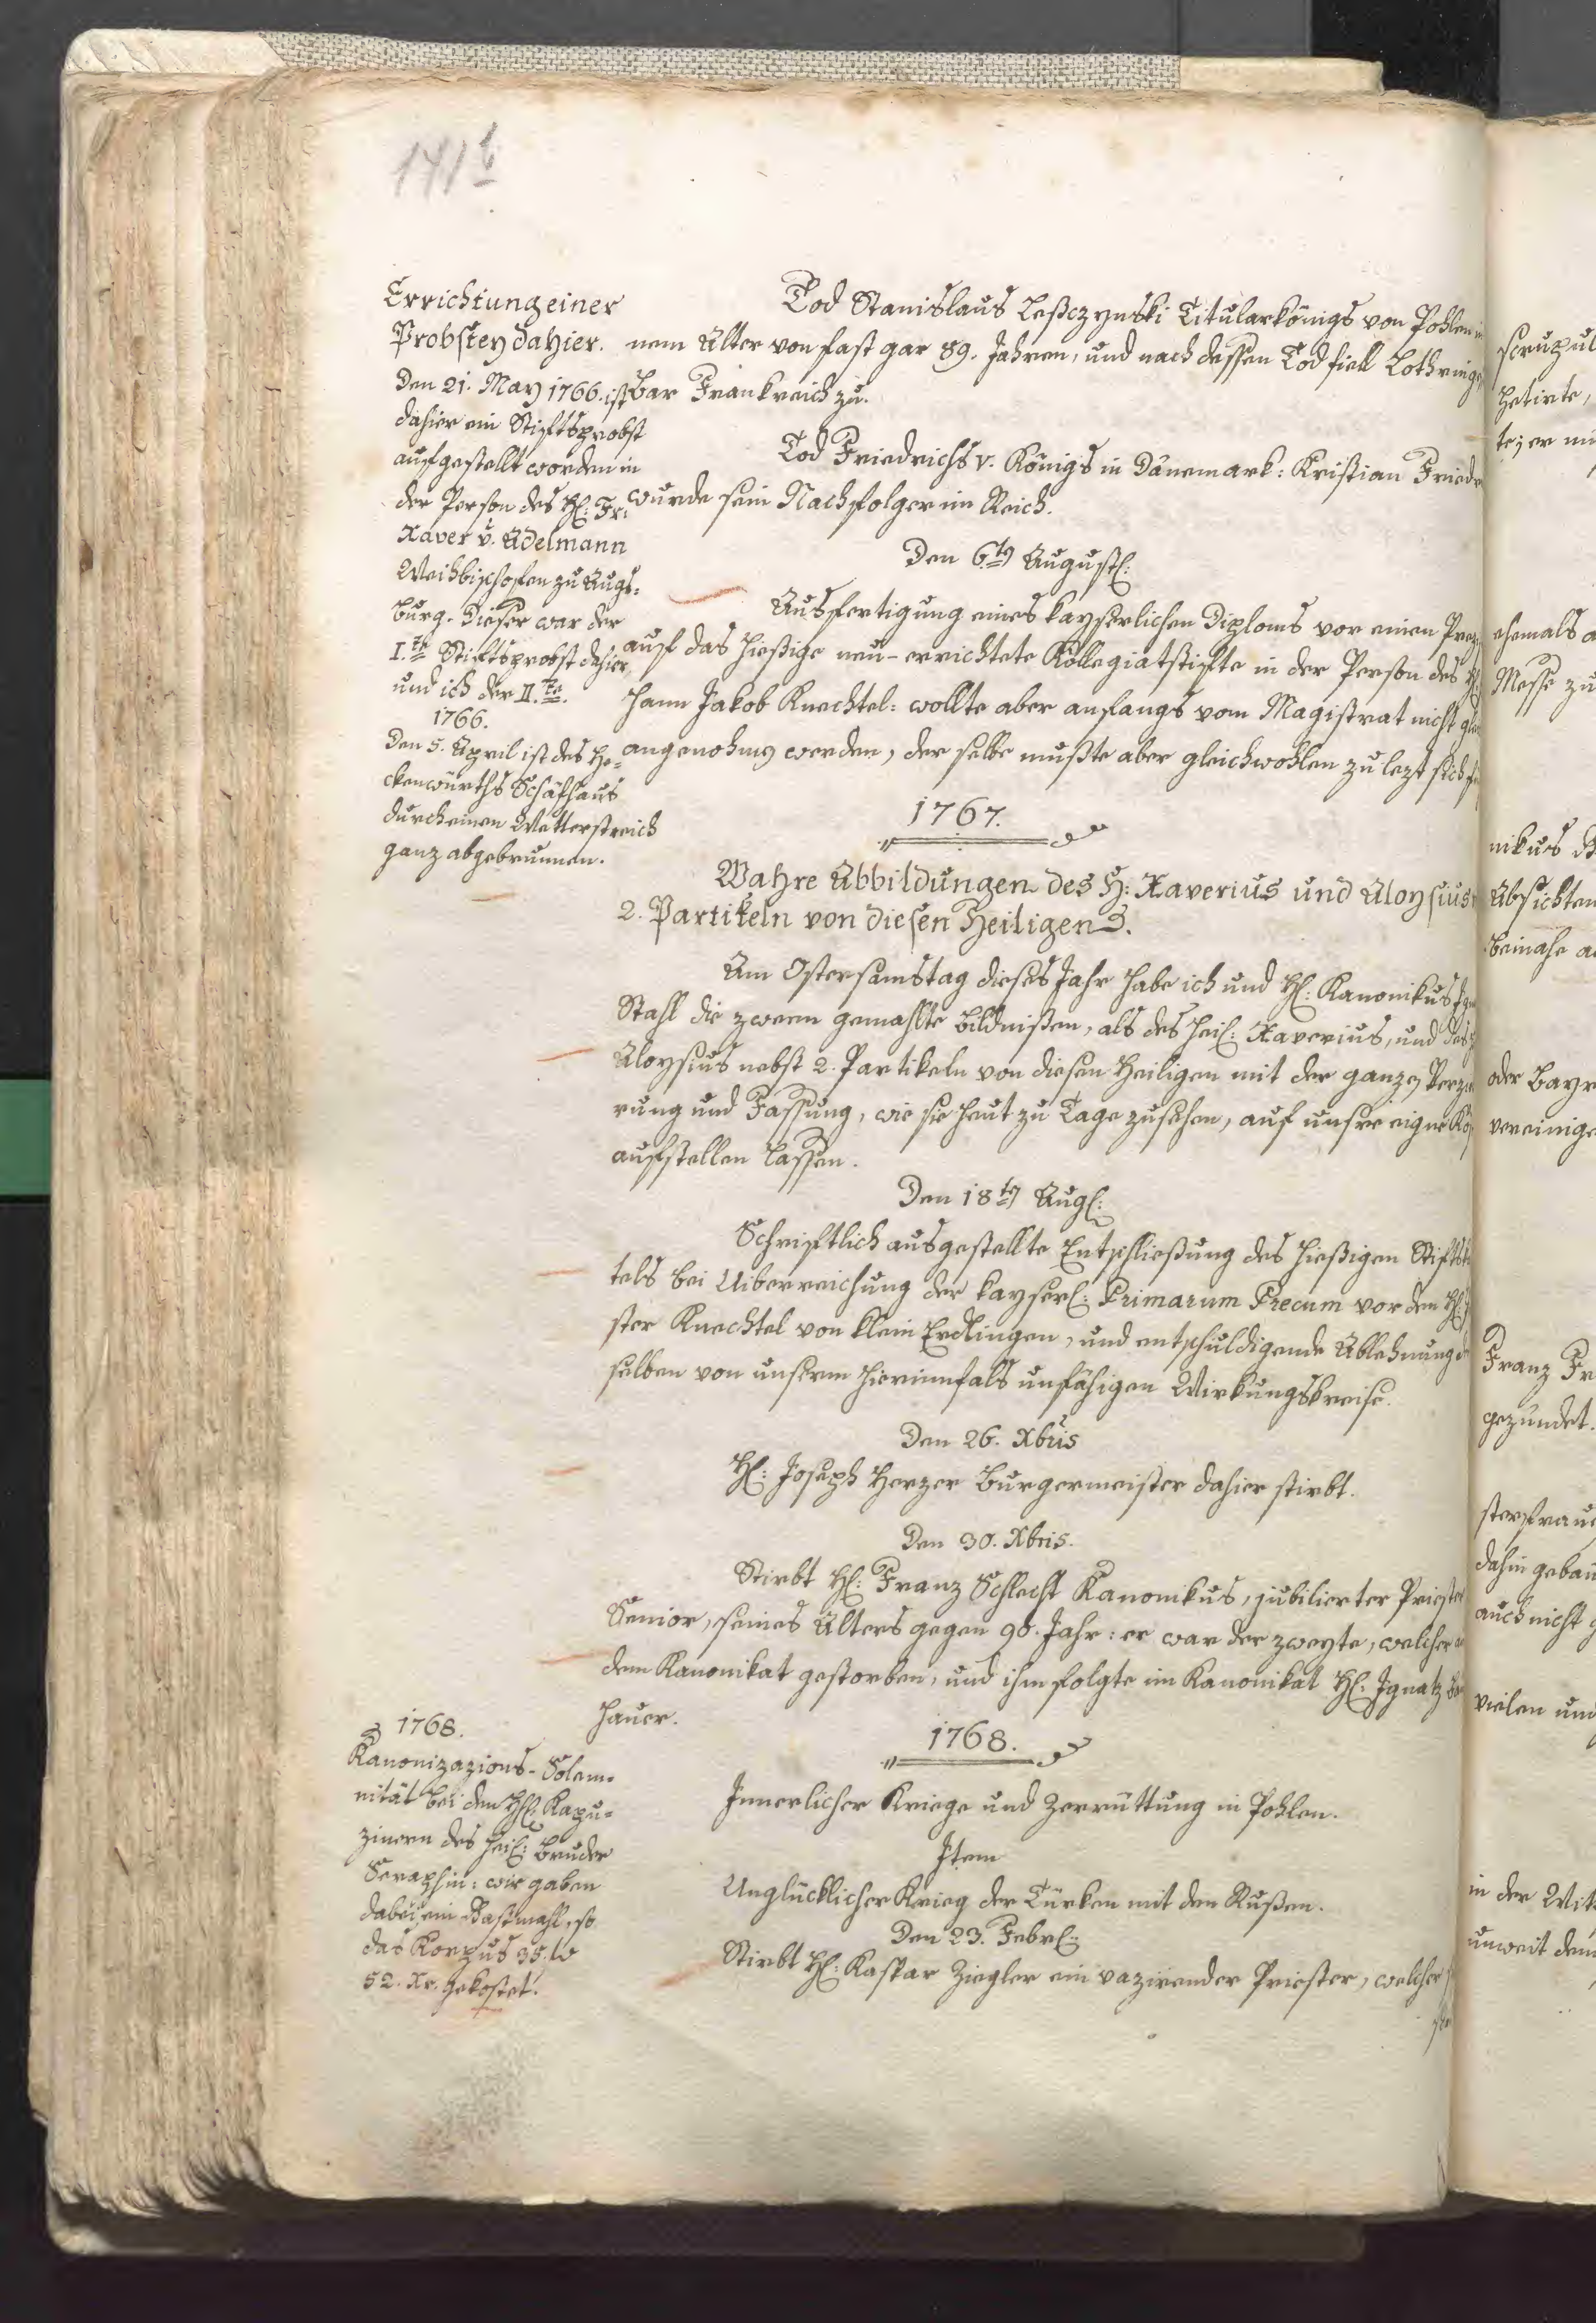 141b
Errichtung einer
Probstey dahier.
Den 21. May 1766. ist
dahier ein Stiftsprobst
aufgestellt worden in
der Person des H: Fr:
Xaver v. Adelmann
Weihbischofen zu Augs-
burg. Dieser war der
I.te Stiftsprobst dahier,
und ich der II.te.
1766.
Den 5. April ist des He-
ckenwürths Schafhaus
durch einen Wetterstreich
ganz abgebrunnen.
Tod Stanislaus Leßczynski Titularkönigs von Pohlen
nem Alter von fast gar 89. Jahren, und nach dessen Tod fiell Lothringen
Bar Frankreich zu.
Tod Friedrichs V. Königs in Dänemark: Kristian Friedr
wurde sein Nachfolger im Reich.
Den 6tn August:
Ausfertigung eines kayserlichen Diploms vor einen
auf das hießige neu-errichtete Kollegiatstifte in der Person des H:
hann Jakob Knechtel: wollte aber anfangs vom Magistrat nicht
angenohmen werden, der selbe mußte aber gleichwohlen zu lezt sich
1767.
Wahre Abbildungen des H: Xaverius und Aloysius
2. Partikeln von diesen Heiligen.
Am Ostersamstag dieses Jahr habe ich und H: Kanonikus
Stahl die zween gemahlte Bildnißen, als des heil: Xaverius, und des
Aloysius nebst 2. Partikeln von diesen Heiligen mit der ganzen Verzie
rung und Fassung, wie sie heut zu Tage zusehen, auf unsre eigne
aufstellen lassen.
Den 18tn Aug:
Schriftlich ausgestellte Entschließung des hießigen Stifts
tels bei Uiberreichung der kayserl: Primarum Precum vor den H:
ster Knechtel von klein Erdlingen, und entschuldigende Ablehnung
selben von unserm hierinnfals unfähigen Wirkungskreise.
Den 26. Xbris
H: Joseph Herzer Burgermeister dahier stirbt.
Den 30. Xbris.
Stirbt H: Franz Schlecht Kanonikus, jubilierter Priester
Senior, seines Alters gegen 90. Jahr: er war der zweyte, welcher
dem Kanonikat gestorben, und ihm folgte im Kanonikat H: Ignatz
hauer.
1768.
Kanonizazions-Solem-
nität bei den HH: Kapu-
zinern des heil: Bruder
Seraphin: wir gaben
dabei ein Gastmahl, so
das Korpus 35. fl
52. Xr. gekostet.
1768.
Innerlicher Kriege und Zerrüttung in Pohlen.
Item
Unglücklicher Krieg der Türken mit den Rußen.
Den 23. Febr:
Stirbt H: Kaspar Ziegler ein vazirender Priester, welcher
scrupul
hetirte,
te; er
ehemals
Messe zu
nikus
Absichten
beinahe
oder Bayr
vereinige
Franz Fr
gezündet.
sterfrau
dahin gebau
auch nicht
vielen und
in der Mit
unweit dem